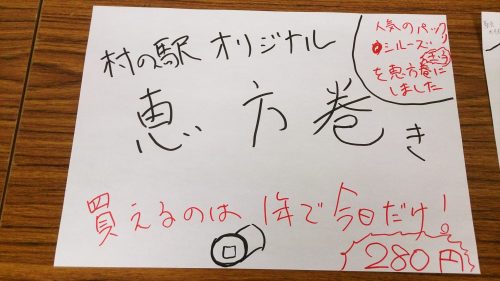 村の駅 オリジナル
恵方巻き
人気のパック
シリーズ
を恵方巻に
しました
買えるのは 1年で今日だけ!
280円